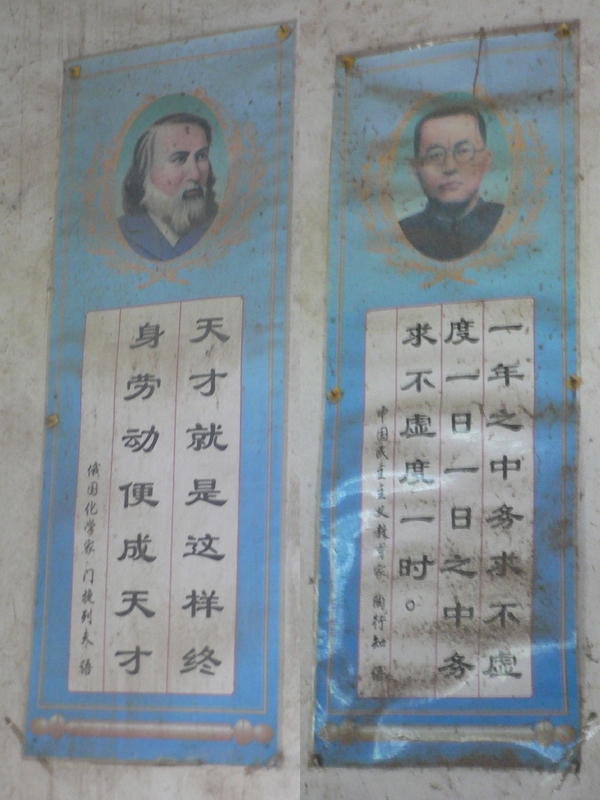 天才就是这样终
身劳动便成天才
俄国化学家 门捷列夫 语
一年之中务求不虚
度一日一日之中务
求不虚度一时。
中国民主主义教育家 陶行知 语